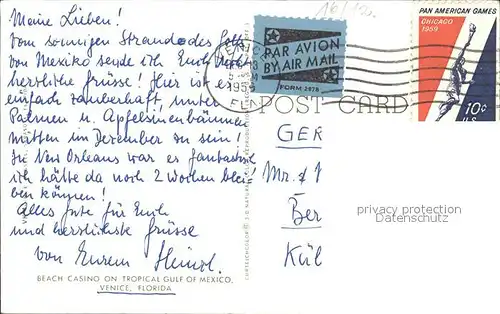 Meine Lieben!
Vom sonnigen Strande des Golfs
von Mexiko sende ich Euch recht
herzliche Grüsse! Hier ist es
einfach zauberhaft, unter
Palmen u. Apfelsinenbäumen
mitten im Dezember zu sein!
In New Orleans war es fantastisch
ich hätte da noch 2 Wochen blei
ben können!
Alles Gute für Euch
und herzlichste Grüsse
von Eurem Heinzl.
BEACH CASINO ON TROPICAL GULF OF MEXICO,
VENICE, FLORIDA
PAR AVION
BY AIR MAIL
FORM 2978
PAN AMERICAN GAMES
CHICAGO
1959
10¢
U.S.
POST CARD
GER
Mr. &
Ber
Kül
privacy protection
Datenschutz